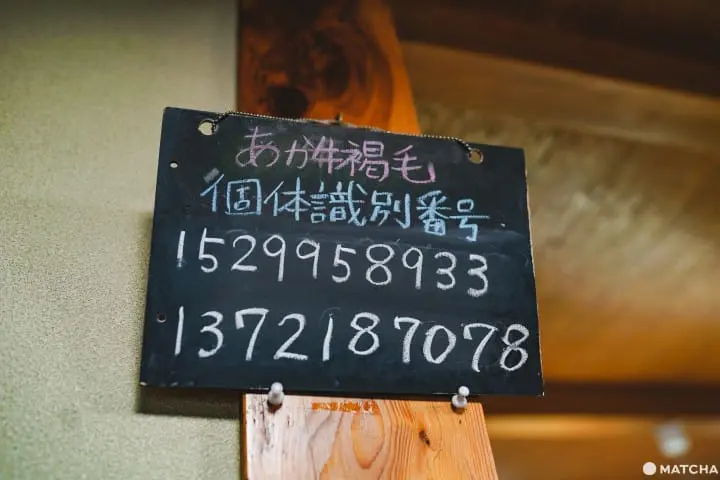 あか牛褐毛
個体識別番号
1529958933
1372187078
MATCHA